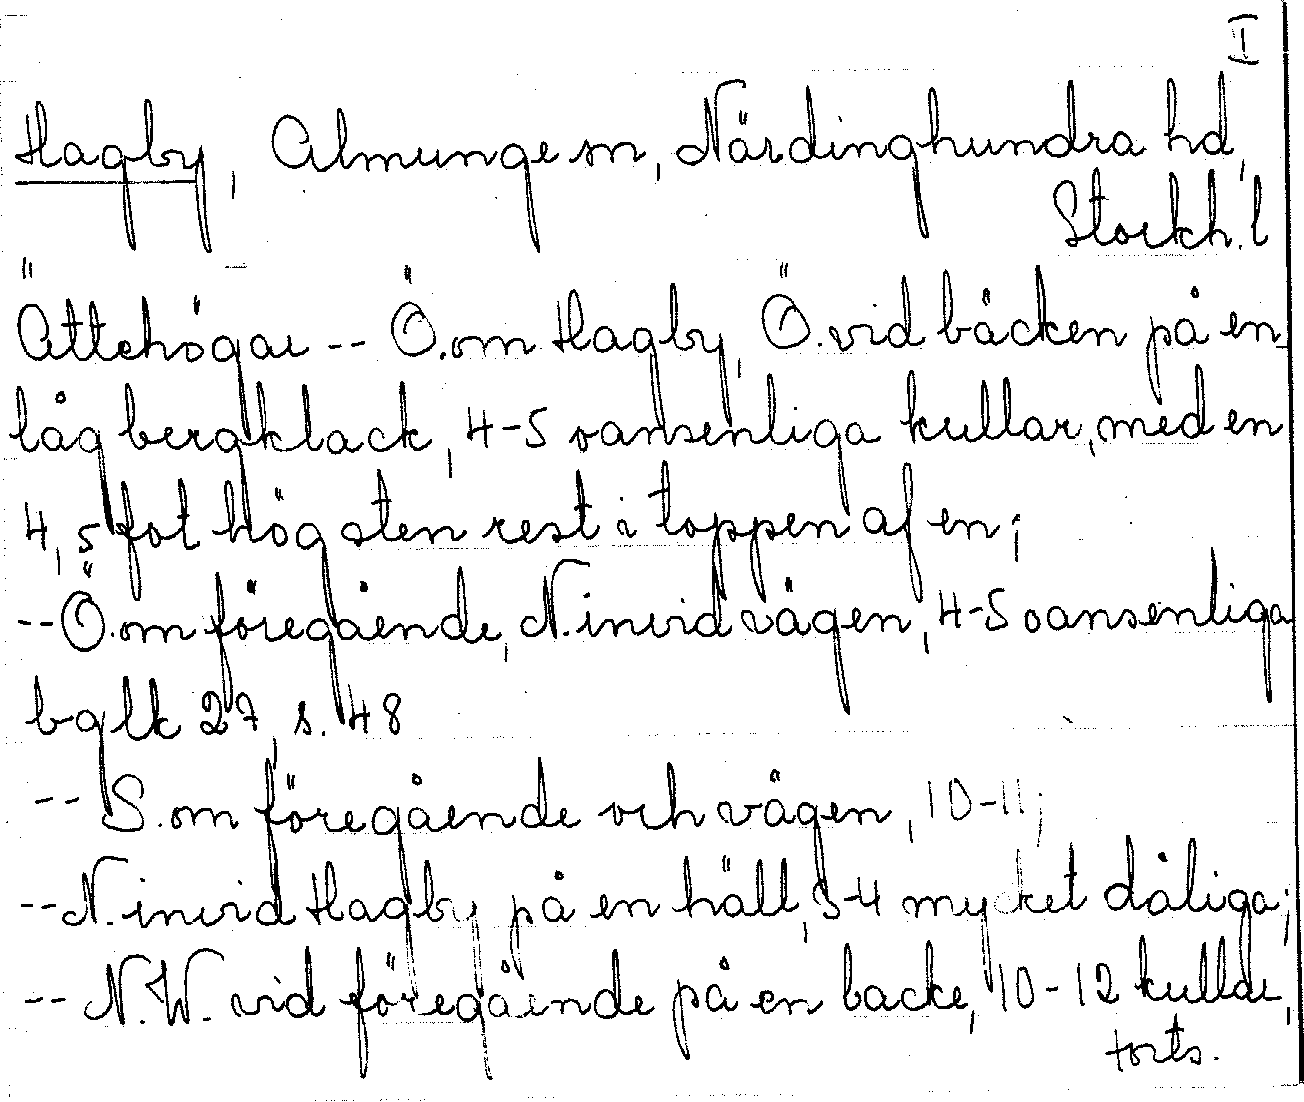 I
Hagby, Almunge sn, Närdinghundra hd,
Stockh. l
Ättehögar -- Ö. om Hagby, Ö. vid bäcken på en
låg bergklack, 4-5 oansenliga kullar, med en
4,5 fot hög sten rest i toppen af en;
-- Ö. om föregående, N. invid vägen, 4-5 oansenliga
bglk 27, s. 48
-- S. om föregående och vägen, 10-11;
-- N. invid Hagby på en häll, 3-4 mycket dåliga;
-- N.W. vid föregående på en backe, 10-12 kullar,
forts.